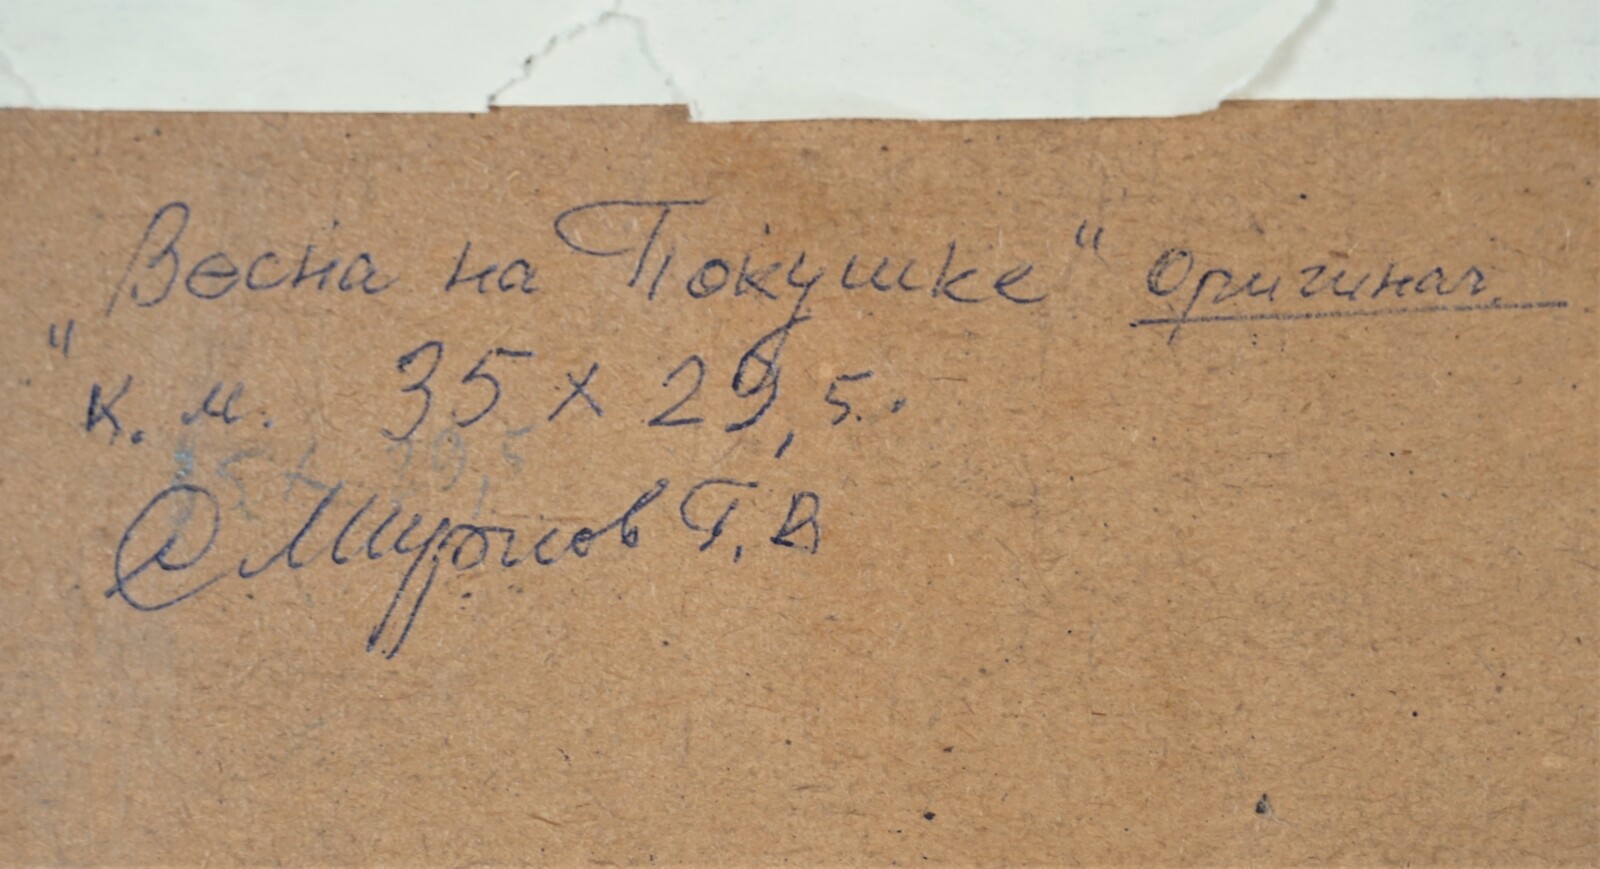 "Весна на Покушке" оригинал
к. м. 35 х 29,5.
35 х 29,5
Т. В